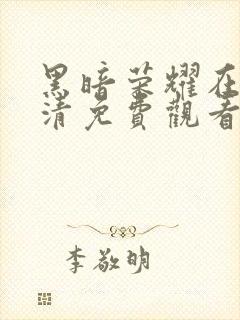 黑暗荣耀在
清免費觀看
李敬明